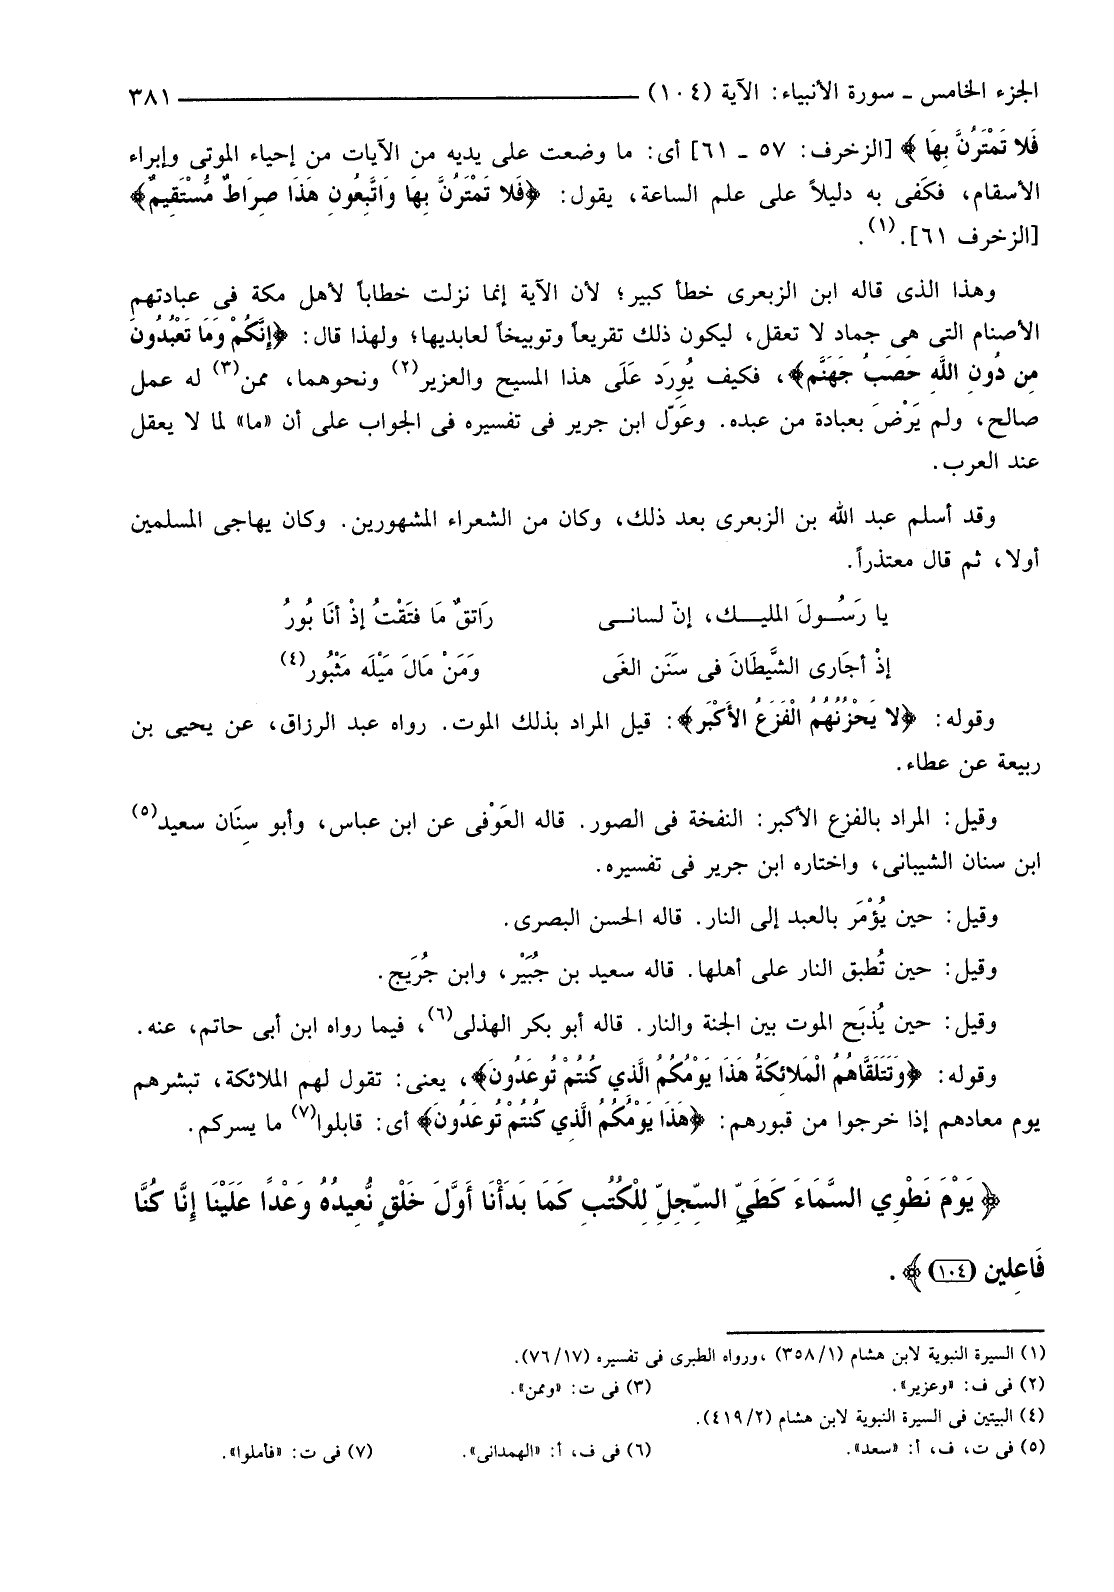 الجزء الخامس ـ سورة الأنبياء: الآية (١٠٤) ـــــــــــــــــــــــــــــــــــــ ٣٨١
فَلا تَمْتَرُنَّ بِهَا ﴾ [الزخرف: ٥٧ ـ ٦١] أى: ما وضعت على يديه من الآيات من إحياء الموتى وإبراء
الأسقام، فكَفى به دليلاً على علم الساعة، يقول: ﴿فَلا تَمْتَرُنَّ بِهَا وَاتَّبِعُونِ هَذَا صِرَاطٌ مُّسْتَقِيمٌ﴾
[الزخرف ٦١].(١).
وهذا الذى قاله ابن الزبعرى خطأ كبير؛ لأن الآية إنما نزلت خطاباً لأهل مكة فى عبادتهم
الأصنام التى هى جماد لا تعقل، ليكون ذلك تقريعاً وتوبيخاً لعابديها؛ ولهذا قال: ﴿إِنَّكُمْ وَمَا تَعْبُدُونَ
مِن دُونِ اللَّهِ حَصَبُ جَهَنَّم﴾، فكيف يُورَد عَلَى هذا المسيح والعزير(٢) ونحوهما، ممن(٣) له عمل
صالح، ولم يَرْضَ بعبادة من عبده. وعَوّل ابن جرير فى تفسيره فى الجواب على أن «ما» لما لا يعقل
عند العرب.
وقد أسلم عبد الله بن الزبعرى بعد ذلك، وكان من الشعراء المشهورين. وكان يهاجى المسلمين
أولا، ثم قال معتذراً.
يا رَسُـولَ المليـــك، إنّ لسانــى رَاتقٌ مَا فَتَقْتُ إذْ أنَا بُورُ
إذْ أجَارى الشَّيطَانَ فى سَنَن الغَى وَمَنْ مَالَ مَيْلَه مَثْبُور(٤)
وقوله: ﴿لا يَحْزُنُهُمُ الْفَزَعُ الأَكْبَر﴾: قيل المراد بذلك الموت. رواه عبد الرزاق، عن يحيى بن
ربيعة عن عطاء.
وقيل: المراد بالفزع الأكبر: النفخة فى الصور. قاله العَوْفى عن ابن عباس، وأبو سِنَان سعيد(٥)
ابن سنان الشيبانى، واختاره ابن جرير فى تفسيره.
وقيل: حين يُؤْمَر بالعبد إلى النار. قاله الحسن البصرى.
وقيل: حين تُطبق النار على أهلها. قاله سعيد بن جُبَيْر، وابن جُرَيج.
وقيل: حين يُذبَح الموت بين الجنة والنار. قاله أبو بكر الهذلى(٦)، فيما رواه ابن أبى حاتم، عنه.
وقوله: ﴿وَتَتَلَقَّاهُمُ الْمَلائِكَةُ هَذَا يَوْمُكُمُ الَّذِي كُنتُمْ تُوعَدُونَ﴾، يعنى: تقول لهم الملائكة، تبشرهم
يوم معادهم إذا خرجوا من قبورهم: ﴿هَذَا يَوْمُكُمُ الَّذِي كُنتُمْ تُوعَدُونَ﴾ أى: قابلوا(٧) ما يسركم.
﴿ يَوْمَ نَطْوِي السَّمَاءَ كَطَيِّ السِّجِلِّ لِلْكُتُبِ كَمَا بَدَأْنَا أَوَّلَ خَلْقٍ نُّعِيدُهُ وَعْدًا عَلَيْنَا إِنَّا كُنَّا
فَاعِلِين (١٠٤) ﴾ .
(١) السيرة النبوية لابن هشام (٣٥٨/١) ،ورواه الطبرى فى تفسيره (٧٦/١٧).
(٢) فى ف: «وعزير». (٣) فى ت: «وممن».
(٤) البيتين فى السيرة النبوية لابن هشام (٤١٩/٢).
(٥) فى ت، ف، أ: «سعد». (٦) فى ف، أ: «الهمدانى». (٧) فى ت: «فأملوا».